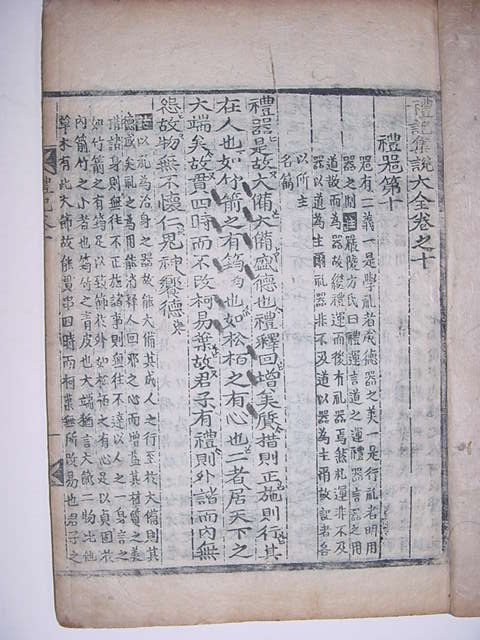 禮記集說大全卷之十
禮器第十
器有二義一是學禮者成德器之美一是行禮者明用
器之制 嚴陵方氏曰禮運言道之運禮器言器之用
道散而爲器故繼禮運而後有禮器焉然禮運非不及
器以道爲主爾禮器非不及道以器爲主爾故記者各
以所主
名篇
禮器是故大備大備盛德也禮釋回增美質措則正施則行其
在人也如竹箭之有筠也如松柏之有心也二者居天下之
大端矣故貫四時而不改柯易葉故君子有禮則外諧而內無
怨故物無不懷仁鬼神饗德
以禮爲治身之器故能大備其成人之行至於大備則其
德盛矣禮之爲用能消釋人回邪之心而增益其材質之美
措諸身則無往不正施諸事則無往不達以人之一身言之
如竹箭之有筠足以致飾於外如松柏之有心足以貞固於
內箭竹之小者也筠竹之青皮也大端猶言大節二物比他
草木有此大節故能貫串四時而柯葉無所改易也君子之